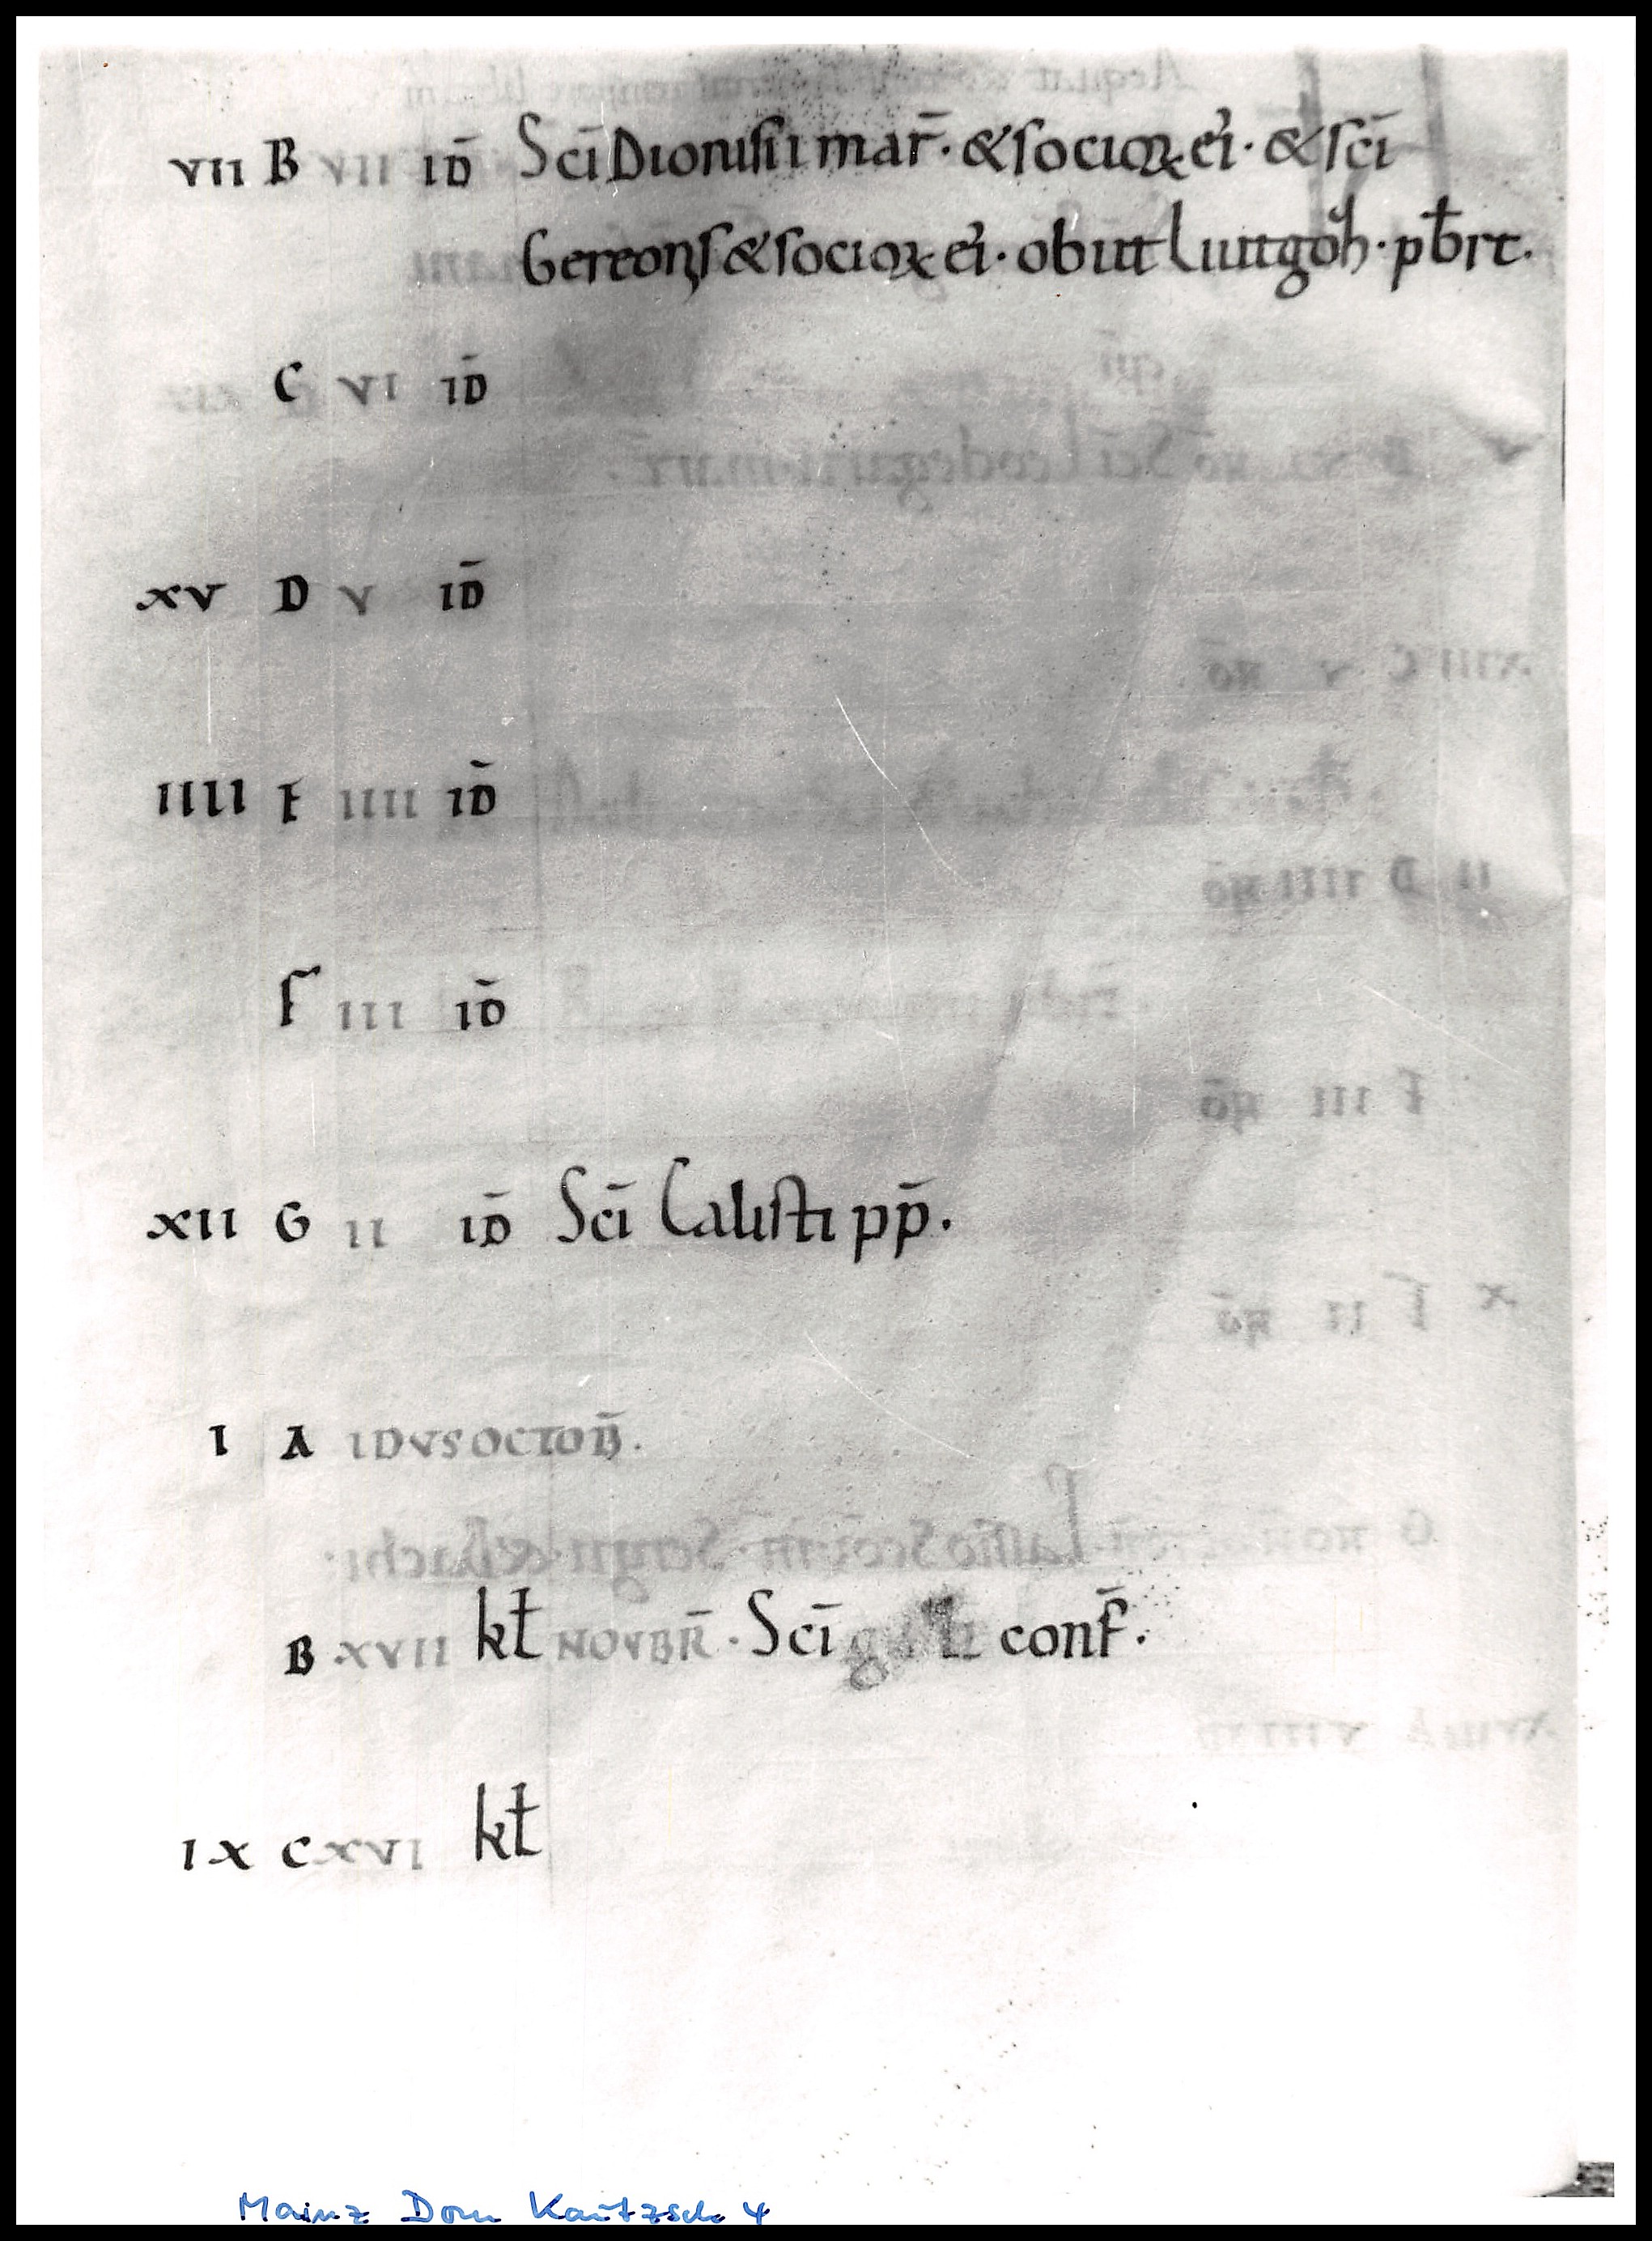 VII B VII ID̄ Sc̄i Dionisii mar̄. & socioꝝ ei'. & sc̄i
Gereonis & socioꝝ ei'. obiit Liutgoh. pƀrt.
C VI ID̄
XV D V ID̄
IIII E IIII ID̄
F III ID̄
XII G II ID̄ Sc̄i Calisti pp̄.
I A IDVS OCTOB̄.
B XVII kł NOVBR̄. Sc̄i galli conf̄.
IX C XVI kł
Mainz Dom Kautzsch 4